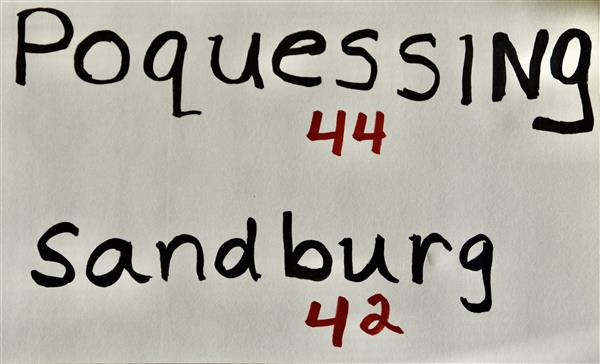 PoquessINg
44
Sandburg
42